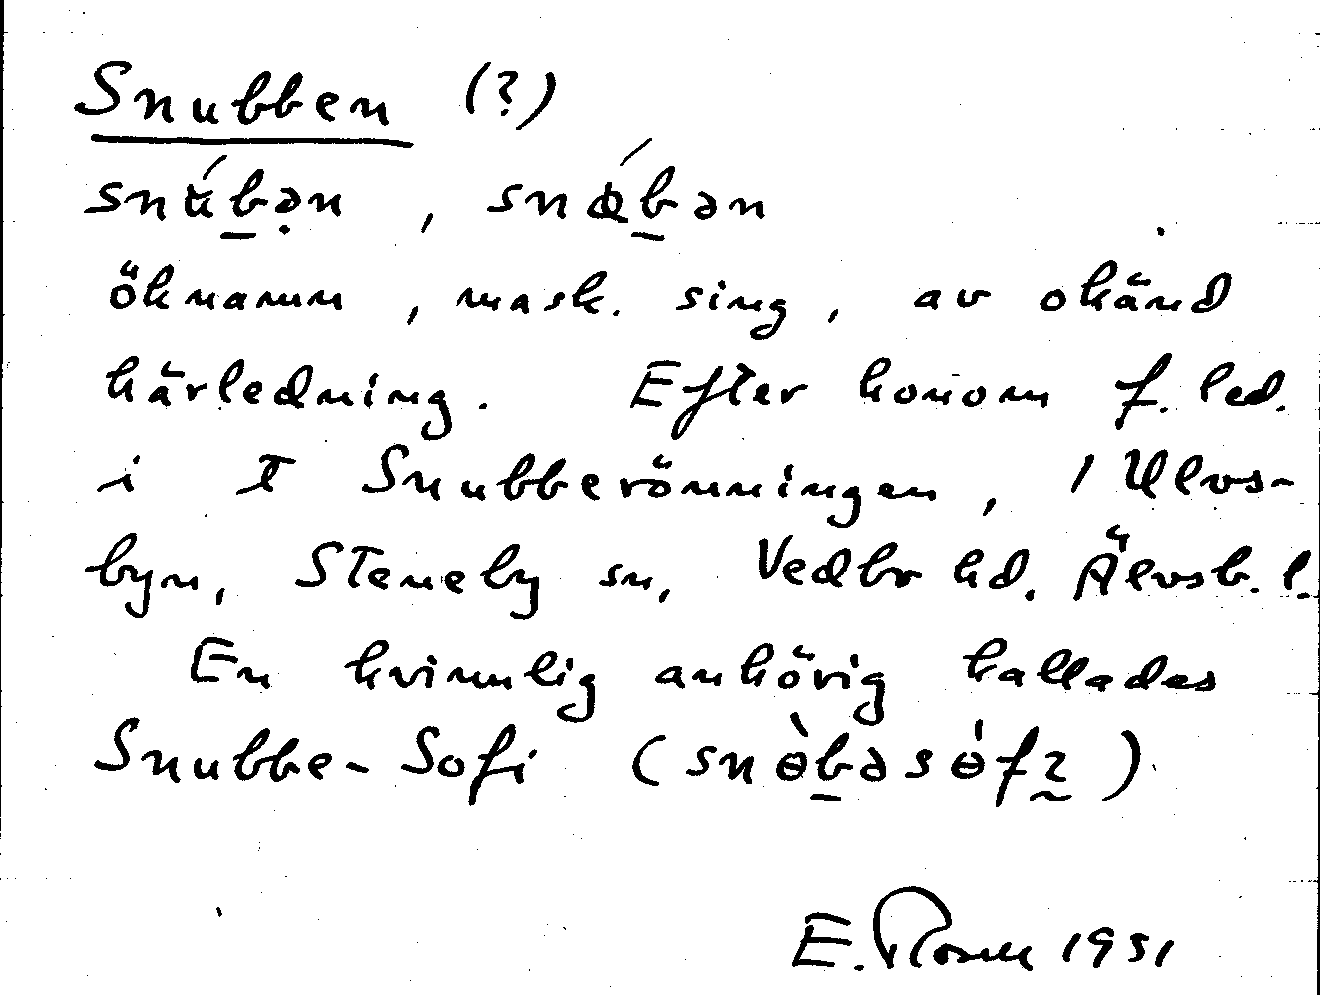 Snubben (?)
snúbən , snǿbən
öknamn , mask. sing , av okänd
härledning. Efter honom f. led.
i T Snubberönningen, / Ulvs-
byn, Steneby sn, Vedbo hd. Älvsb. l.
En kvinnlig anhörig kallades
Snubbe-Sofi (snɵ̀bəsɵ́fɩ)
E. 1951